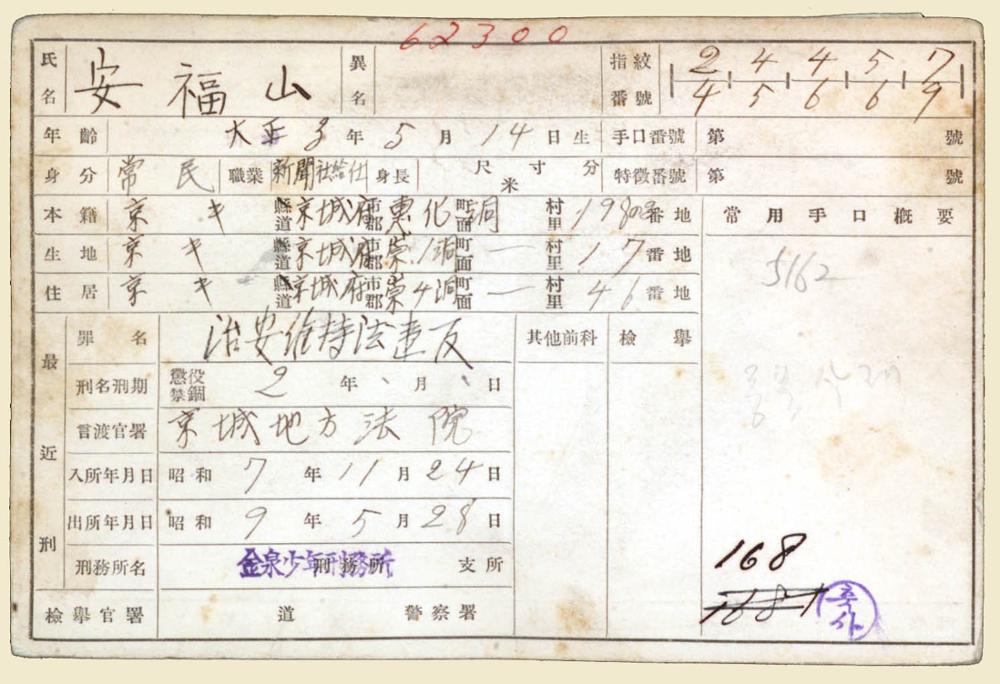 62300
氏名 安福山 異名 指紋番號 2 4 4 5 7
4 5 6 6 9
年齡 大正3年5月14日生 手口番號 第 號
身分 常民 職業 新聞社給仕 身長 尺寸分 米 特徵番號 第 號
本籍 京キ 縣道 京城府 市郡 惠化洞 町面 村里 番地 常用手口概要
生地 京キ 縣道 京城府 市郡 崇1洞 町面 一 村里 17番地
住居 京キ 縣道 京城府 市郡 崇4洞 町面 一 村里 46番地
5162
最近刑
罪名 治安維持法違反 其他前科 檢擧
刑名刑期 懲役 禁錮 2年、月、日
言渡官署 京城地方法院
入所年月日 昭和7年11月24日
出所年月日 昭和9年5月28日
刑務所名 金泉少年刑務所 刑務所 支所
168
檢擧官署 道 警察署
1681